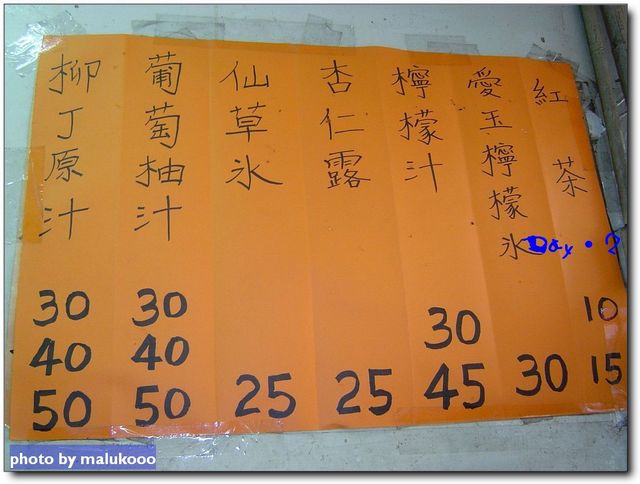 紅茶
10
15
愛玉檸檬氷
30
檸檬汁
30
45
杏仁露
25
仙草氷
25
葡萄柚汁
30
40
50
柳丁原汁
30
40
50
Day
photo by malukooo